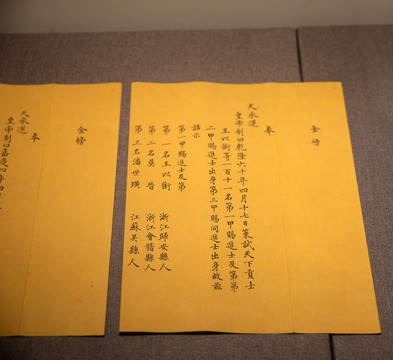 金榜
奉
天承運
皇帝制曰乾隆六十年四月十七日策試天下貢士
王以銜等一百十一名第一甲賜進士及第第
二甲賜進士出身第三甲賜同進士出身故茲
誥示
第一甲賜進士及第
第一名王以銜 浙江歸安縣人
第二名莫晉 浙江會稽縣人
第三名潘世璜 江蘇吳縣人
金榜
奉
天承運
皇帝制曰嘉慶四年四